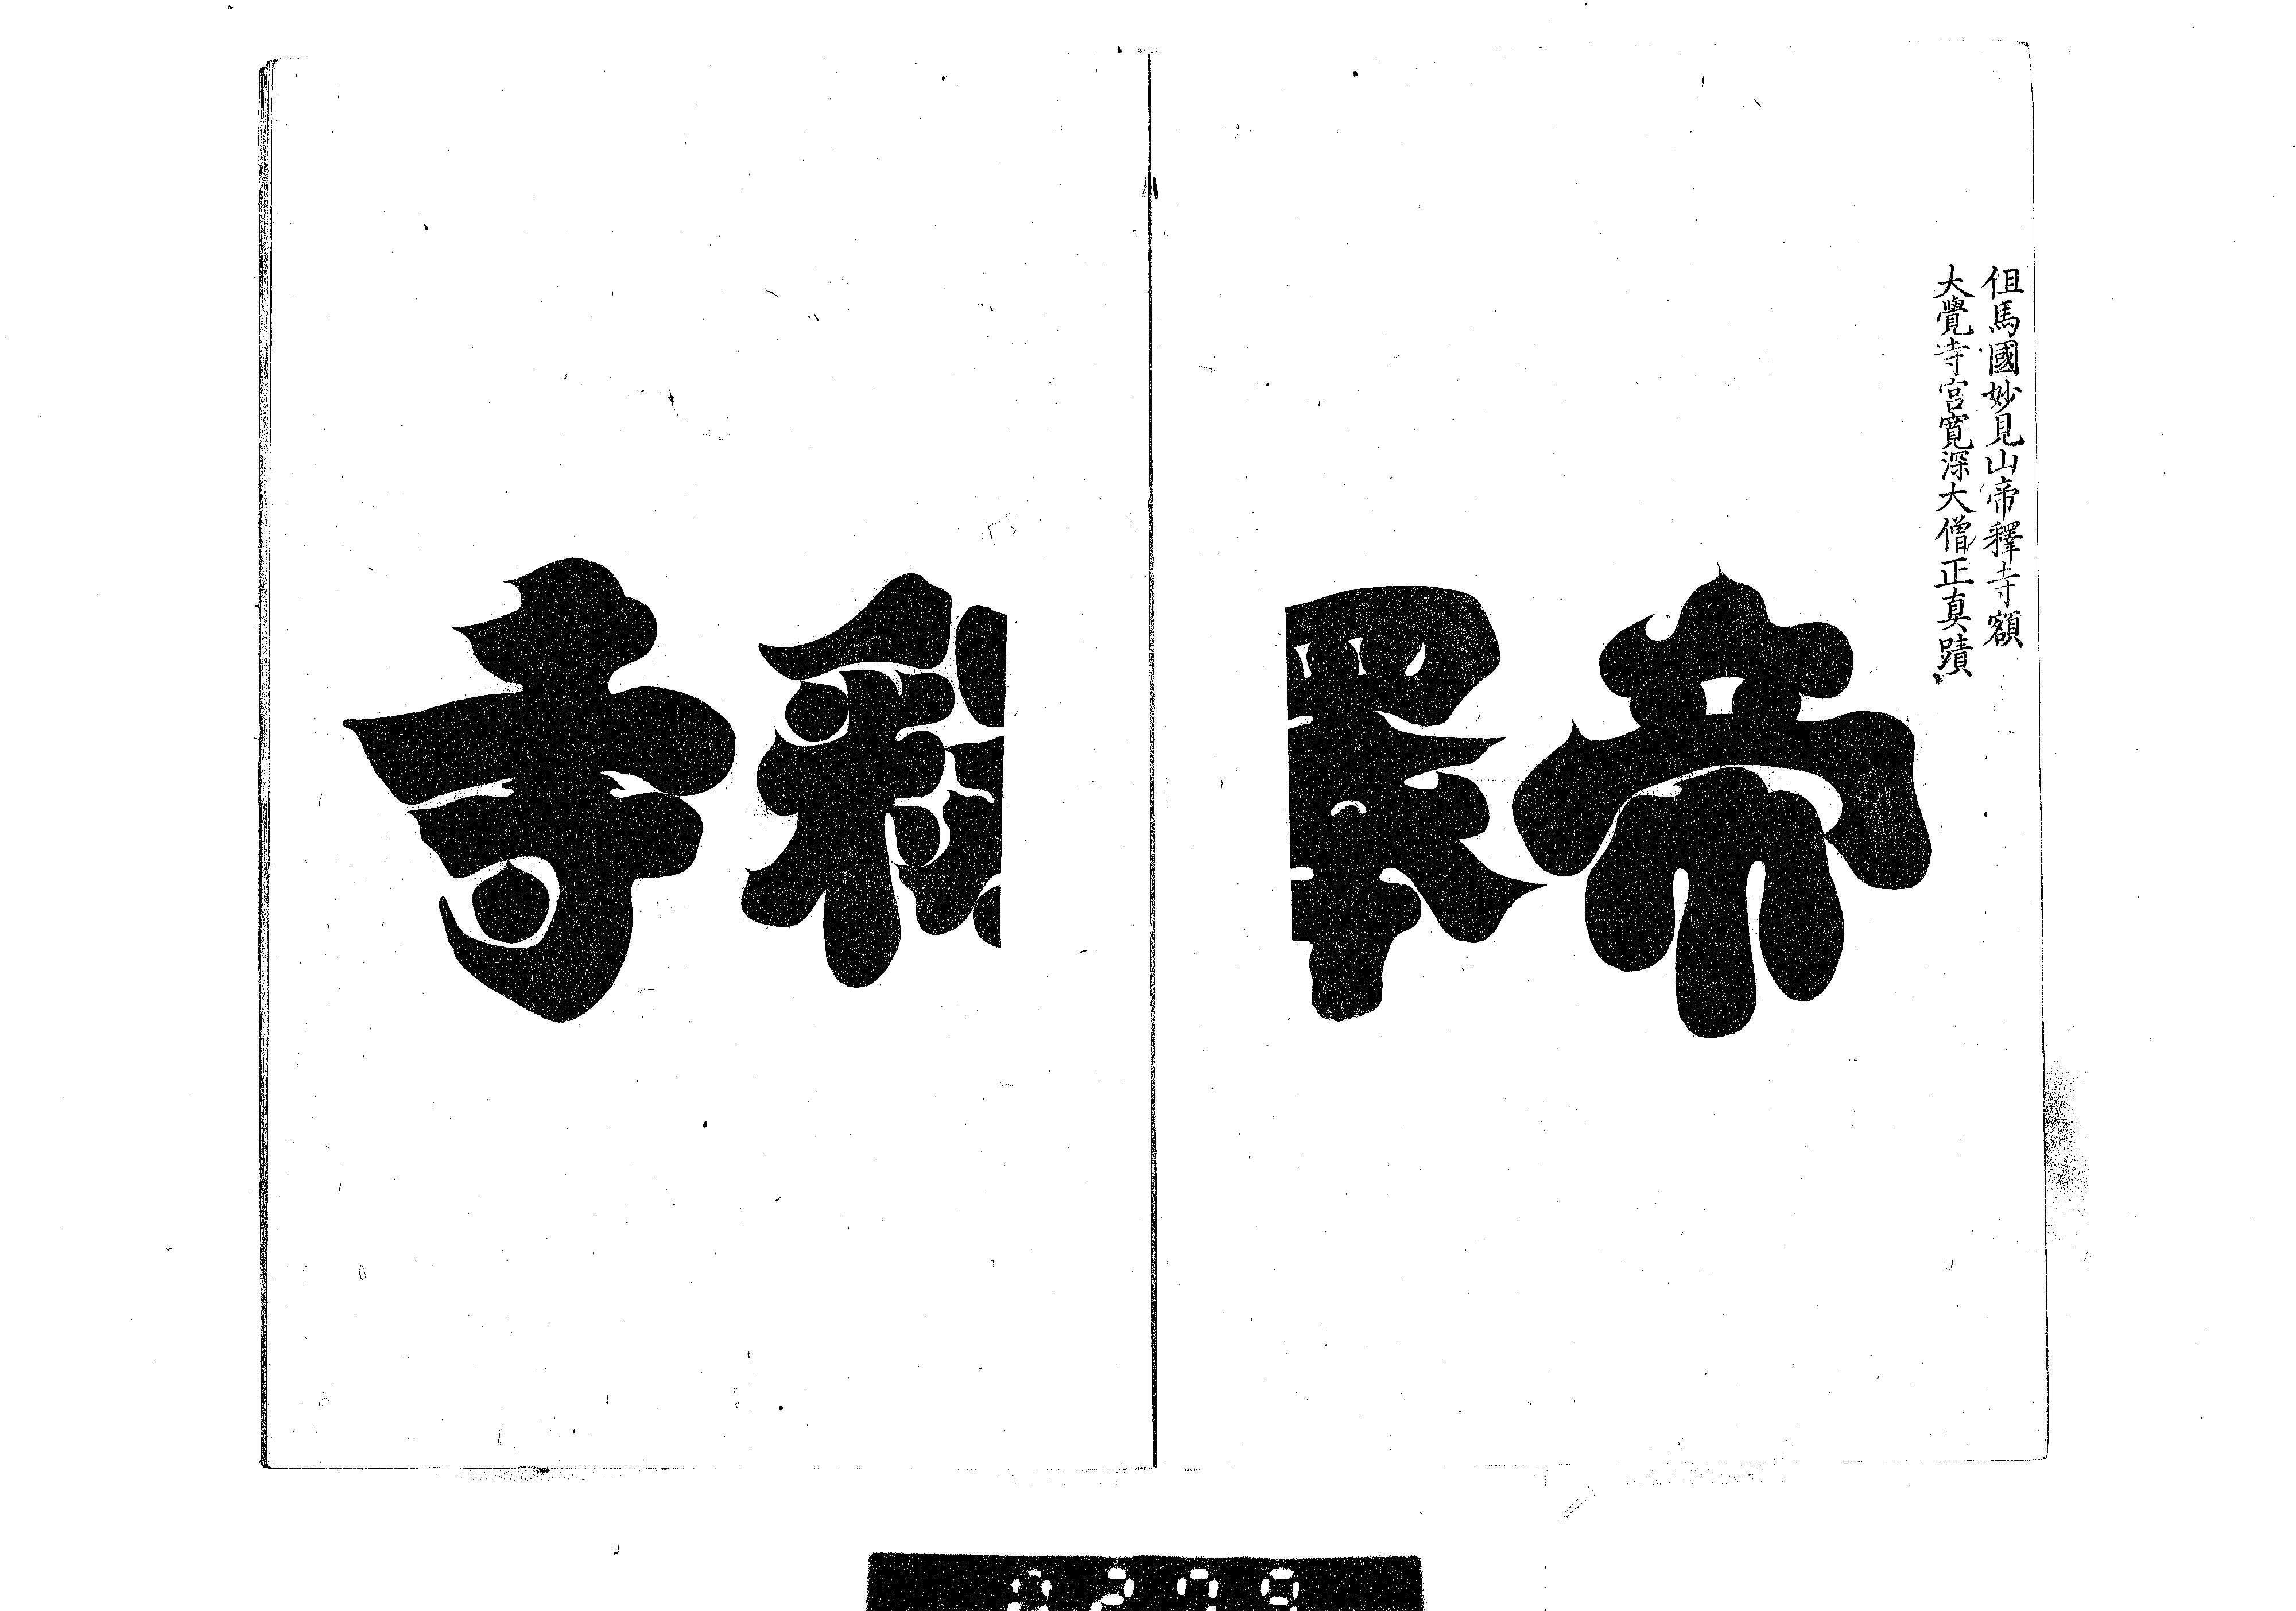 但馬國妙見山帝釋寺額
大覺寺宮寛深大僧正真蹟
帝釋寺